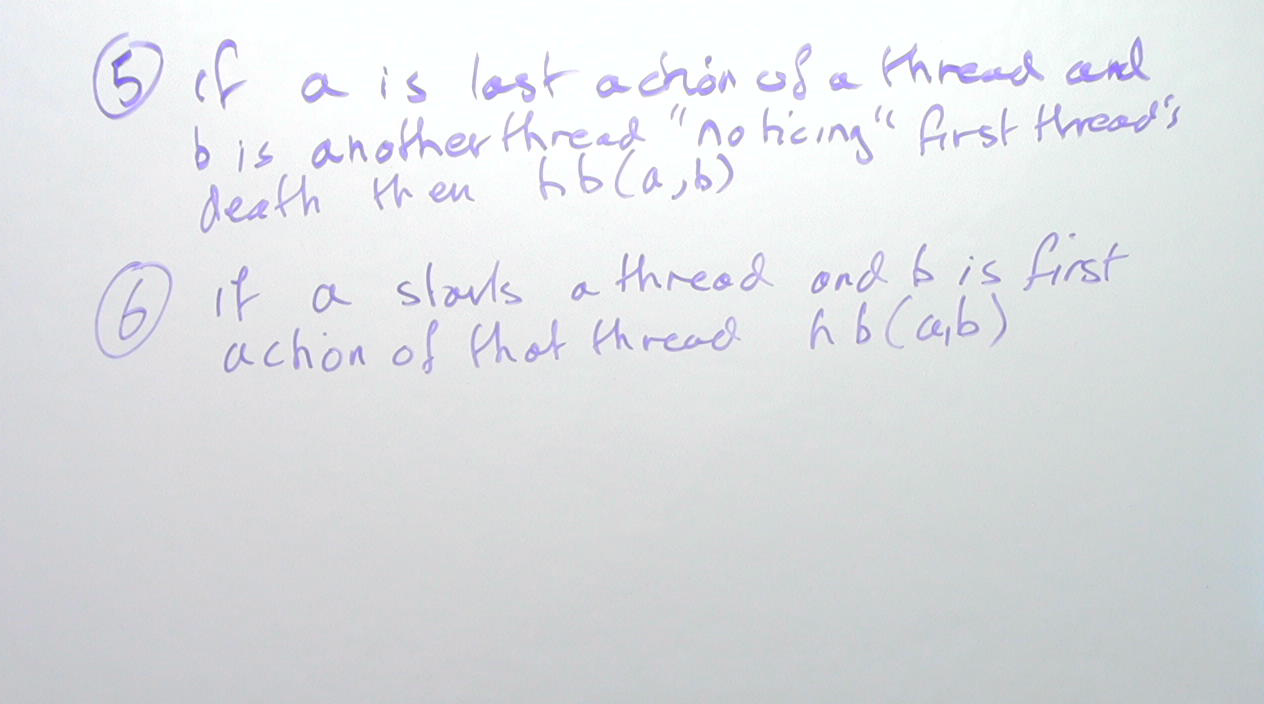 ⑤ if a is last action of a thread and
b is another thread "noticing" first thread's
death then hb(a,b)
⑥ if a starts a thread and b is first
action of that thread hb(a,b)